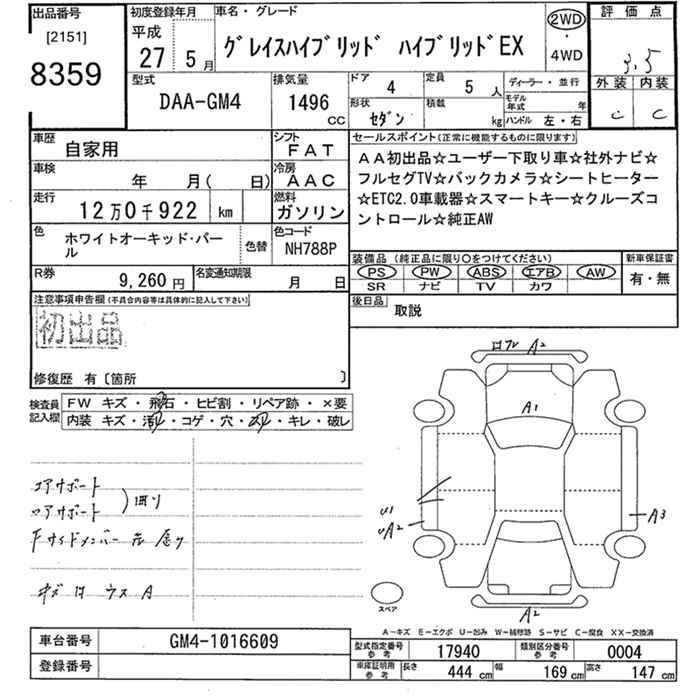 出品番号
[2151]
8359
初度登録年月
平成
27 5月
車名・グレード
グレイスハイブリッド ハイブリッドEX
2WD
・
4WD
評価点
3.5
外装 内装
C C
型式
DAA-GM4
排気量
1496 CC
ドア 4
定員 5 人
形状 セダン
積載 kg
ディーラー・並行
モデル年式 年
ハンドル 左・右
車歴
自家用
シフト
FAT
車検
年 月( 日)
冷房
AAC
走行
12万0千922 km
燃料
ガソリン
色
ホワイトオーキッド・パール
色替
色コード
NH788P
R券
9,260 円
名変通知期限
月 日
セールスポイント(正常に機能するものに限ります)
AA初出品☆ユーザー下取り車☆社外ナビ☆
フルセグTV☆バックカメラ☆シートヒーター
☆ETC2.0車載器☆スマートキー☆クルーズコ
ントロール☆純正AW
装備品 (純正品に限り○をつけてください)
PS PW ABS エアB AW
SR ナビ TV カワ
新車保証書
有・無
後日品
取説
注意事項申告欄(不具合内容等は具体的に記入して下さい)
初出品
修復歴 有〔箇所 〕
検査員記入欄
FW キズ・飛石・ヒビ割・リペア跡・×要
内装 キズ・汚れ・コゲ・穴・スレ・キレ・破レ
コアサポート
ロアサポート
)凹り
Fサイドメンバー 左 曲り
キズ 凹 ウス A
ロアレ A2
A1
U1
UA2
A3
A2
スペア
A−キズ E−エクボ U−凹み W−補修跡 S−サビ C−腐食 XX−交換済
車台番号
GM4-1016609
登録番号
型式指定番号 参考
17940
類別区分番号 参考
0004
車庫証明用 参考
長さ 444 cm
幅 169 cm
高さ 147 cm